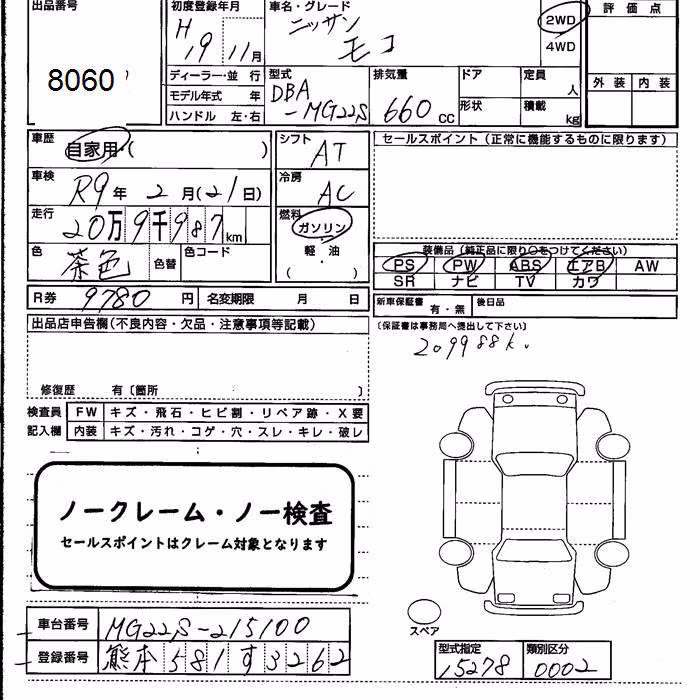 出品番号 8060
初度登録年月 H19 11月
車名・グレード ニッサン モコ
2WD
4WD
評価点
外装 内装
ディーラー・並行
モデル年式 年
ハンドル 左・右
型式 DBA-MG22S
排気量 660 cc
ドア
形状
定員 人
積載 kg
車歴 自家用・( )
シフト AT
セールスポイント(正常に機能するものに限ります)
車検 R9年 2月(21日)
冷房 AC
走行 20万9千987km
燃料 ガソリン
軽・油
( )
色 茶色 色替
色コード
装備品(純正品に限り○をつけてください)
PS PW ABS エアB AW
SR ナビ TV カワ
R券 9780円 名変期限 月 日
新車保証書 有・無 後日品
(保証書は事務局へ提出して下さい)
209988k.
出品店申告欄(不良内容・欠品・注意事項等記載)
修復歴 有〔箇所 〕
検査員記入欄
FW キズ・飛石・ヒビ割・リペア跡・X要
内装 キズ・汚れ・コゲ・穴・スレ・キレ・破レ
ノークレーム・ノー検査
セールスポイントはクレーム対象となります
スペア
車台番号 MG22S-215100
登録番号 熊本581す3262
型式指定 15278
類別区分 0002